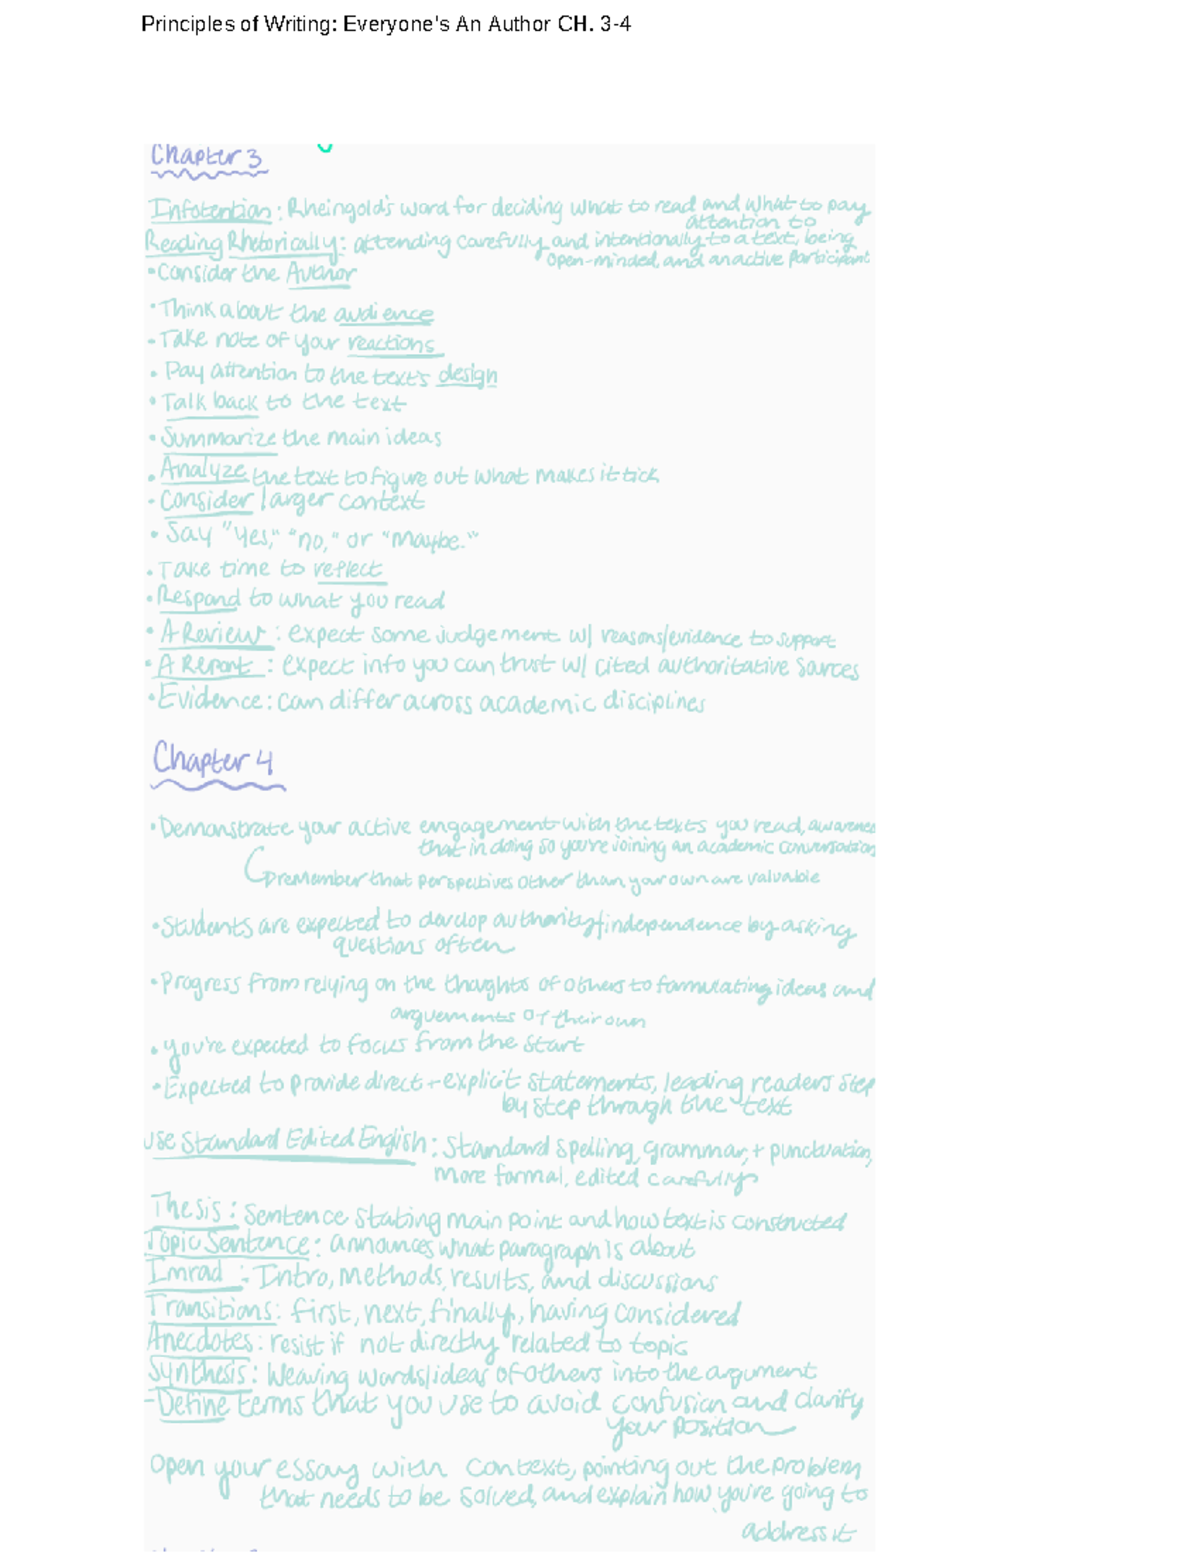 Principles of Writing: Everyone's An Author CH. 3-4
Chapter 3
Infotention: Rheingold's word for deciding what to read and what to pay
attention to
Reading Rhetorically: attending carefully and intentionally to a text, being
open-minded, and an active participant
•Consider the Author
•Think about the audience
•Take note of your reactions
•Pay attention to the text's design
•Talk back to the text
•Summarize the main ideas
•Analyze the text to figure out what makes it tick
•Consider larger context
•Say "yes," "no," or "maybe."
•Take time to reflect
•Respond to what you read
•A Review: expect some judgement w/ reasons/evidence to support
•A Report: expect info you can trust w/ cited authoritative sources
•Evidence: can differ across academic disciplines
Chapter 4
•Demonstrate your active engagement with the texts you read, awareness
that in doing so you're joining an academic conversation
remember that perspectives other than your own are valuable
•Students are expected to develop authority/independence by asking
questions often
•Progress from relying on the thoughts of others to formulating ideas and
arguements of their own
•you're expected to focus from the start
•Expected to provide direct + explicit statements, leading readers step
by step through the text
use Standard Edited English: standard spelling, grammar, + punctuation,
more formal, edited carefully
Thesis: sentence stating main point and how text is constructed
Topic Sentence: announces what paragraph is about
Imrad: Intro, methods, results, and discussions
Transitions: first, next, finally, having considered
Anecdotes: resist if not directly related to topic
Synthesis: weaving words/ideas of others into the argument
-Define terms that you use to avoid confusion and clarify
your position
Open your essay with context, pointing out the problem
that needs to be solved, and explain how you're going to
address it